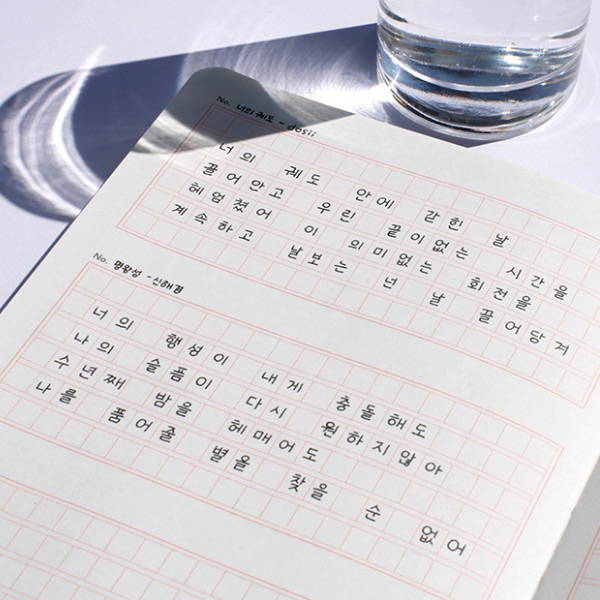 No. 너의 궤도 - dosii
너의 궤도 안에 갇힌 날
끌어안고 우린 끝이없는 시간을
헤엄쳤어 이 의미없는 회전을
계속하고 날보는 넌 날 끌어당겨
No. 명왕성 - 신해경
너의 행성이 내게 충돌해도
나의 슬픔이 다시 원하지않아
수년째 밤을 헤매어도
나를 품어줄 별을 찾을 순 없어